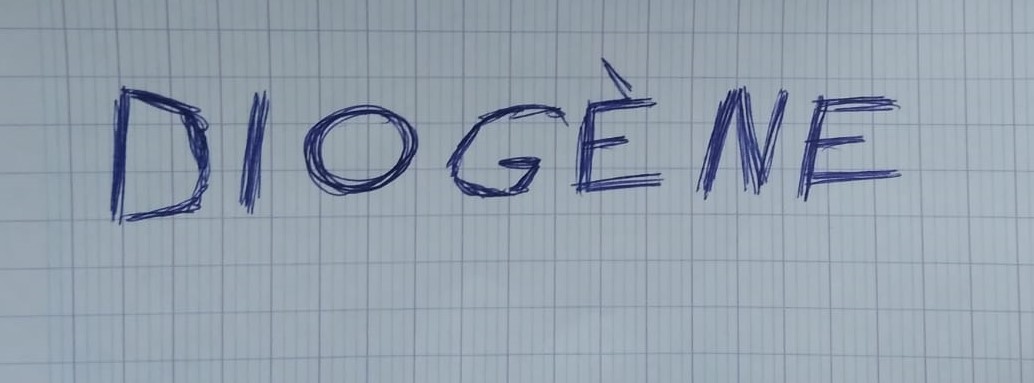 DIOGÈNE